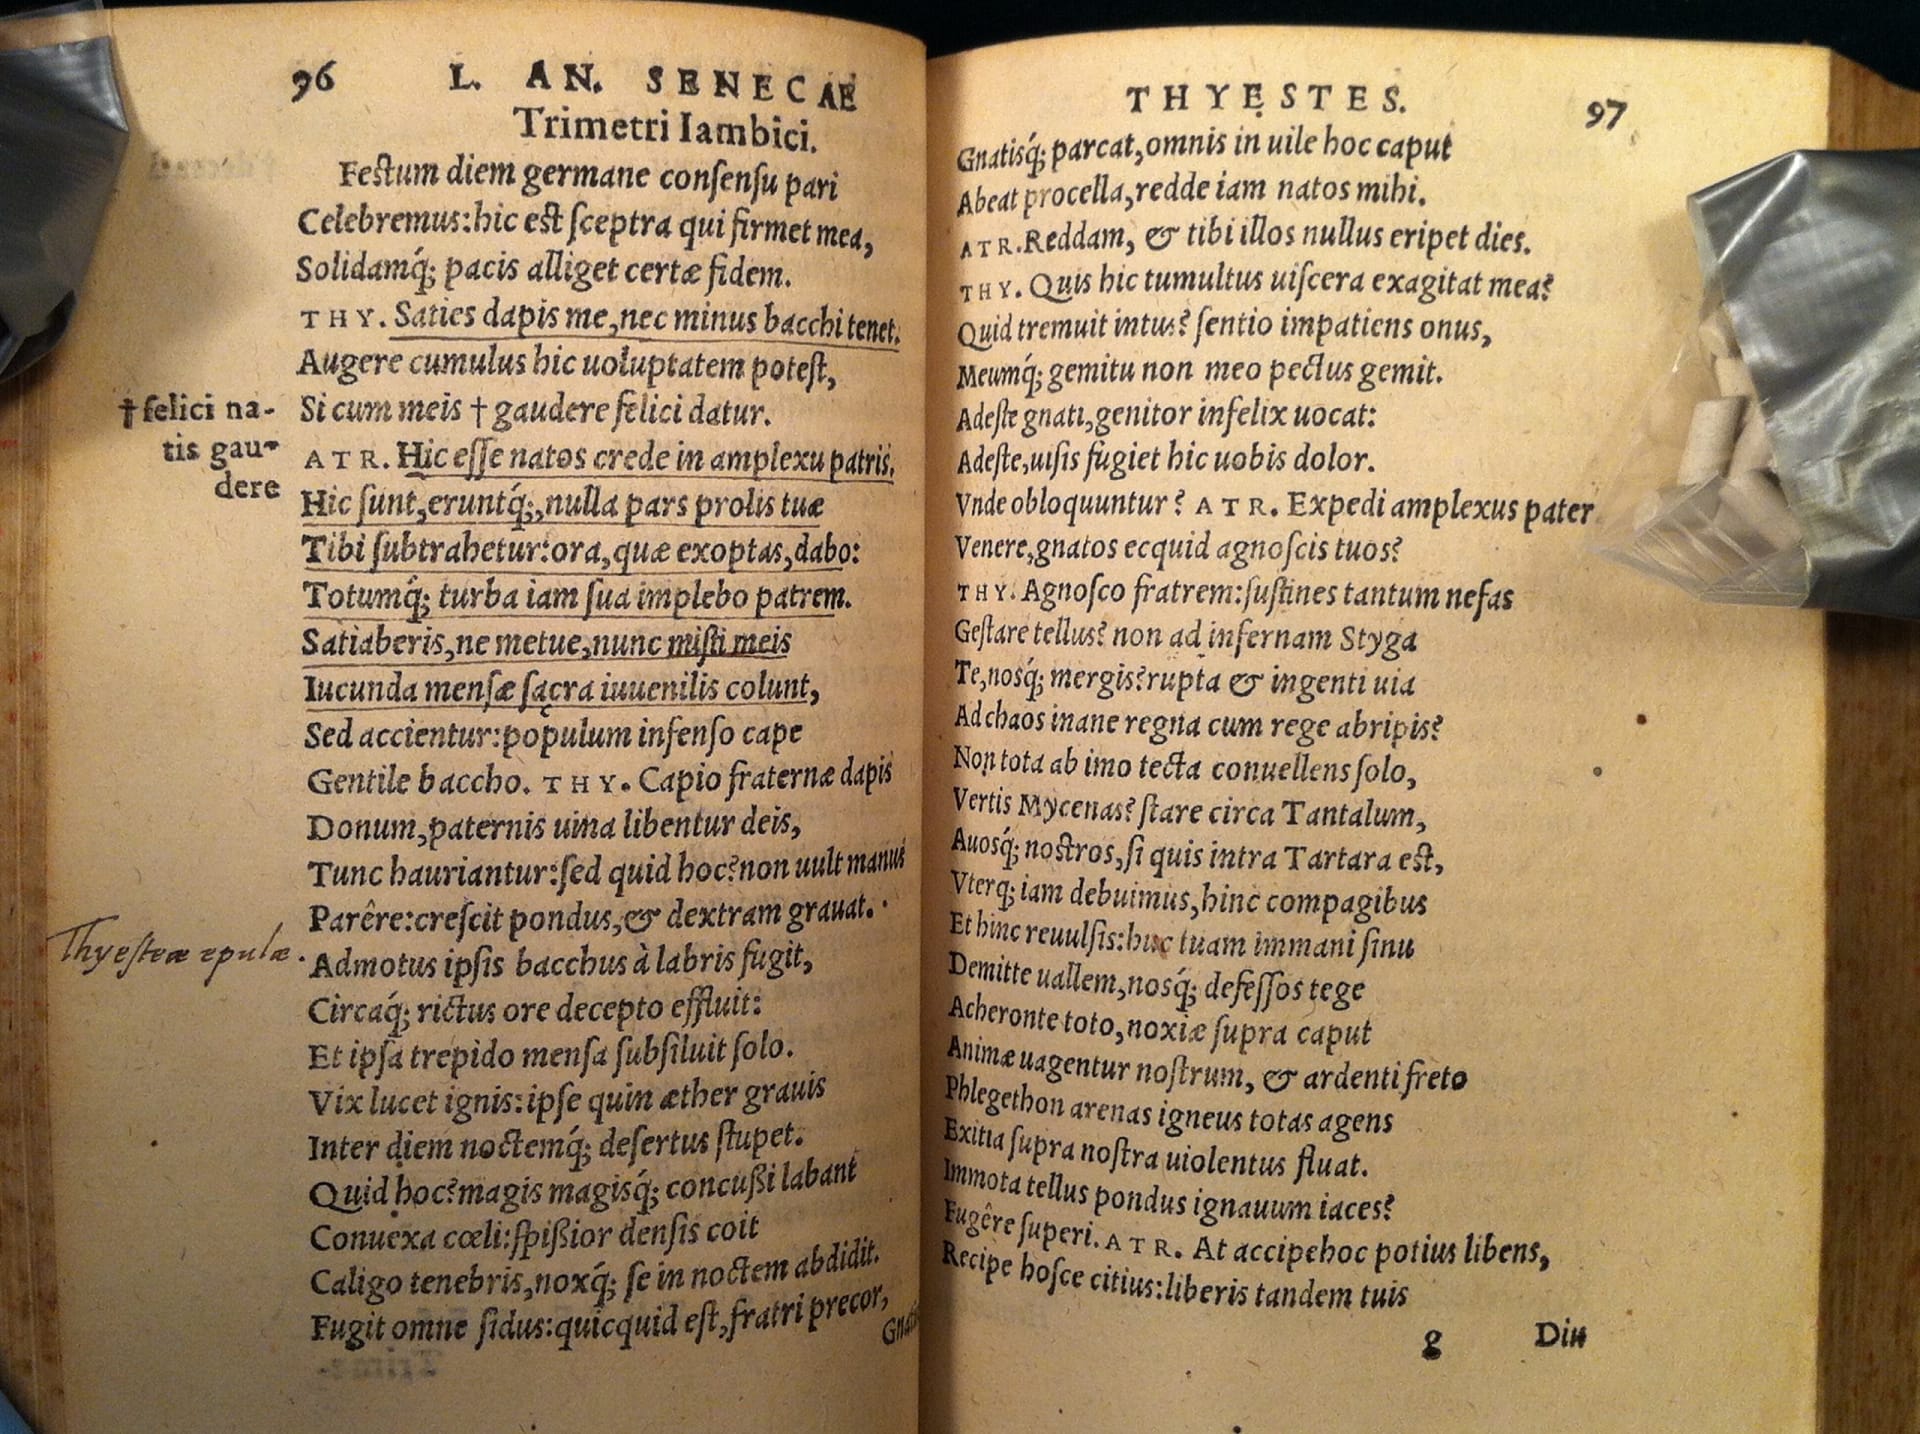 96 L. AN. SENECAE
Trimetri Iambici.
Festum diem germane consensu pari
Celebremus:hic est sceptra qui firmet mea,
Solidamq́; pacis alliget certæ fidem.
THY. Saties dapis me,nec minus bacchi tenet.
Augere cumulus hic uoluptatem potest,
Si cum meis † gaudere felici datur.
† felici na-
tis gau-
dere
ATR. Hic esse natos crede in amplexu patris.
Hic sunt,eruntq́;,nulla pars prolis tuæ
Tibi subtrahetur:ora,quæ exoptas,dabo:
Totumq́; turba iam sua implebo patrem.
Satiaberis,ne metue,nunc misti meis
Iucunda mensæ sacra iuuenilis colunt,
Sed accientur:populum infenso cape
Gentile baccho. THY. Capio fraternæ dapis
Donum,paternis uina libentur deis,
Tunc hauriantur:sed quid hoc?non uult manus
Parêre:crescit pondus,& dextram grauat.
Thyesteæ epulæ.
Admotus ipsis bacchus à labris fugit,
Circaq́; rictus ore decepto effluit:
Et ipsa trepido mensa subsiluit solo.
Vix lucet ignis:ipse quin æther grauis
Inter diem noctemq́; desertus stupet.
Quid hoc?magis magisq́; concußi labant
Conuexa cœli:spißior densis coit
Caligo tenebris,noxq́; se in noctem abdidit.
Fugit omne sidus:quicquid est,fratri precor,
THYESTES. 97
Gnatisq́; parcat,omnis in uile hoc caput
Abeat procella,redde iam natos mihi.
ATR.Reddam, & tibi illos nullus eripet dies.
THY. Quis hic tumultus uiscera exagitat mea?
Quid tremuit intus? sentio impatiens onus,
Meumq́; gemitu non meo pectus gemit.
Adeste gnati,genitor infelix uocat:
Adeste,uisis fugiet hic uobis dolor.
Vnde obloquuntur? ATR. Expedi amplexus pater
Venere,gnatos ecquid agnoscis tuos?
THY. Agnosco fratrem:sustines tantum nefas
Gestare tellus? non ad infernam Styga
Te,nosq́; mergis?rupta & ingenti uia
Ad chaos inane regna cum rege abripis?
Non tota ab imo tecta conuellens solo,
Vertis Mycenas? stare circa Tantalum,
Auosq́; nostros,si quis intra Tartara est,
Vterq; iam debuimus,hinc compagibus
Et hinc reuulsis:huc tuam immani sinu
Demitte uallem,nosq́; defessos tege
Acheronte toto,noxiæ supra caput
Animæ uagentur nostrum, & ardenti freto
Phlegethon arenas igneus totas agens
Exitia supra nostra uiolentus fluat.
Immota tellus pondus ignauum iaces?
Fugêre superi. ATR. At accipe hoc potius libens,
Recipe hosce citius:liberis tandem tuis
g Diu